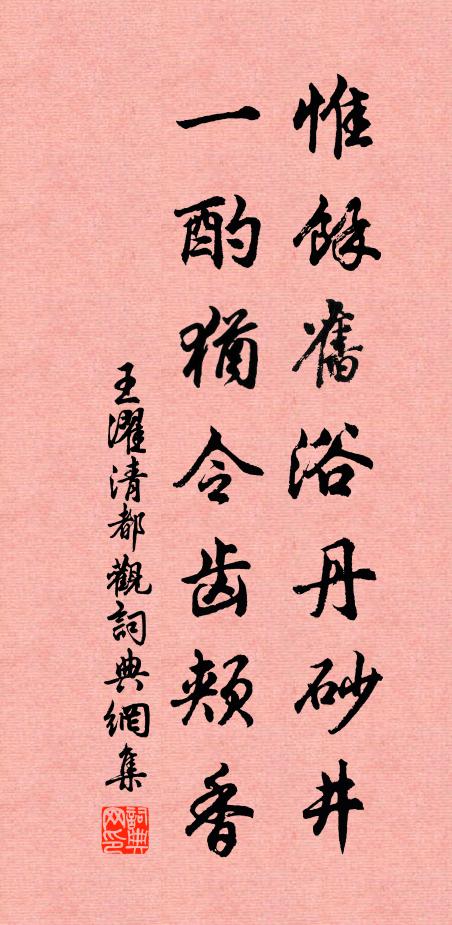 惟餘舊浴丹砂井
一酌猶令齿頰香
王濯清都觀詞典網集
詞典网印